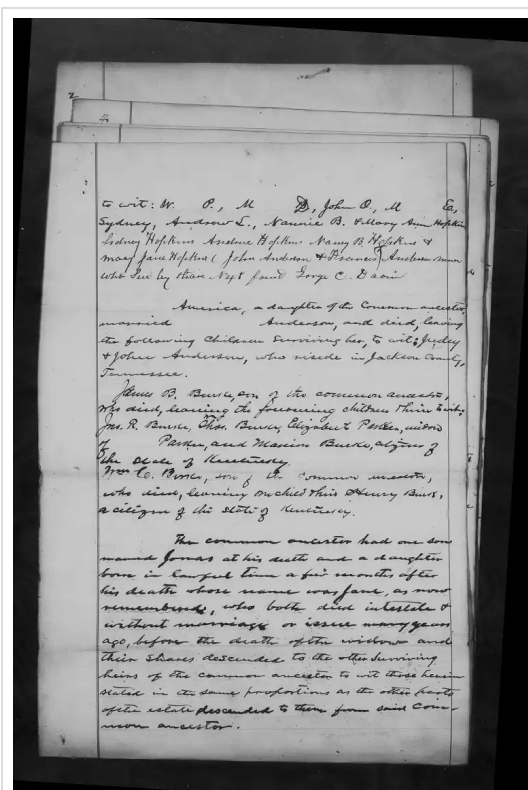 2
4
to wit: W. P., M D, John O., M Ea,
Sydney, Andrew L., Nannie B. & Mary Ann Hopkins
Sidney Hopkins Andrew Hopkins Nancy B Hopkins &
Mary Jane Hopkins ( John Anderson & Francis Anderson minors
who Sue by their Next friend George C. Davis
America, a daughter of the Common ancestor,
married Anderson, and died, leaving
the following Children Surviving her, to wit; Judey
& John Anderson, who reside in Jackson County,
Tennessee.
James B. Burke, son of the common ancestor,
was died, leaving the following children & heirs to wit;
Jas. R. Burke, Thos. Burke, Elizabeth Parker, widow
of Parker, and Marion Burke, citizens of
the State of Kentucky.
Wm C. Burke, son of the common ancestor,
who died, leaving one child & heir Henry Burke,
a citizen of the State of Kentucky.
The common ancestor had one son
named Jonas at his death and a daughter
born in lawful time a few months after
his death whose name was Jane, as now
remembered, who both died intestate &
without marriage or issue many years
ago, before the death of the widow and
their shares descended to the other Surviving
heirs of the common ancestor to wit those herein
stated in the same proportions as the other parts
of the estate descended to them from said Com-
mon ancestor.